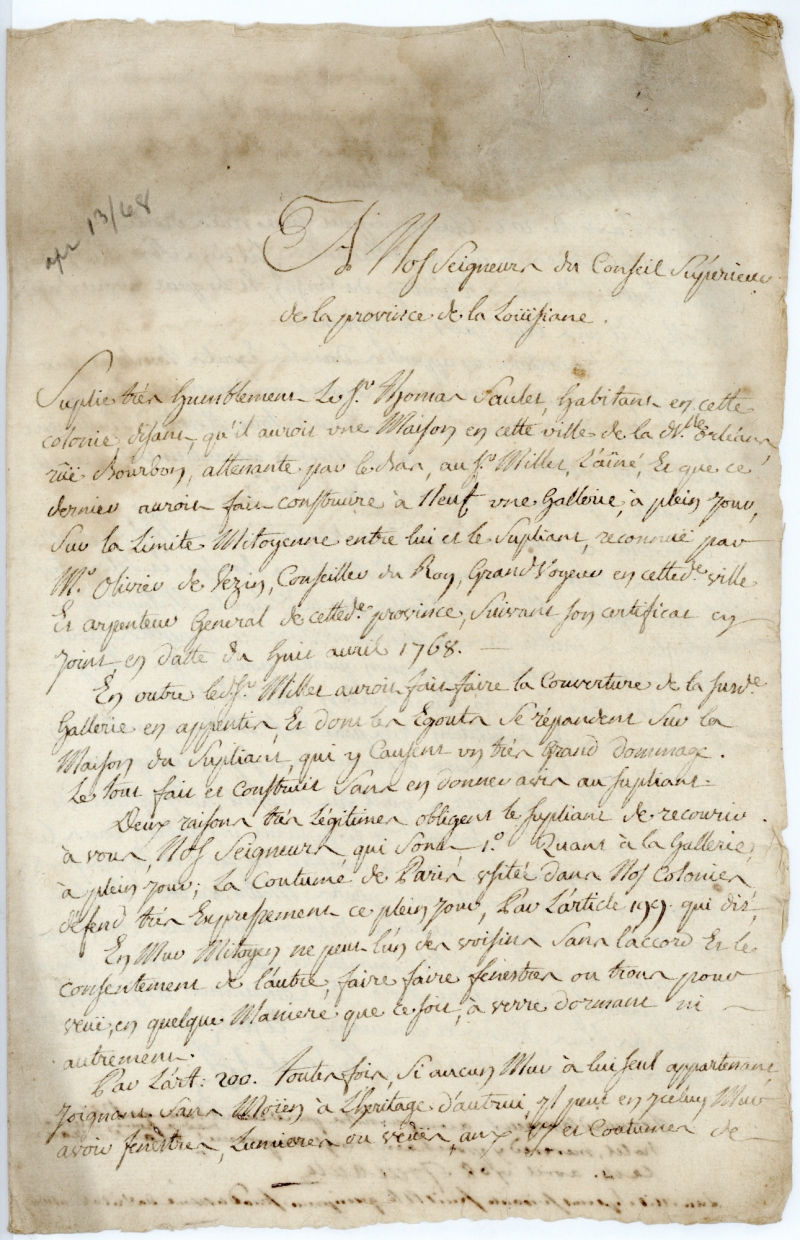 apr 13/68
A Nos Seigneurs du Conseil Supérieur
de la province de la Loüisiane.
Suplie trés humblement Le Sr. Thomas Saulet, habitant en cette
colonie disant, qu'il auroit vne Maison en cette ville de la Nlle. orléans,
rüe Bourbon, attenante par le bas, au Sr. Millet, L'aîné, Et que ce
dernier auroit fait construire à Neuf vne Gallerie, à plein jour,
Sur la Limite Mitoyenne entre lui et le Supliant, reconnuë par
Mr. Olivier de Vézin, Conseiller du Roy, Grand Voyeur en cette de. ville
Et arpenteur General de cette de. province, Suivant son certificat cy
joint, en datte du huit avril 1768. —
En outre led. Sr. Millet auroit fait faire la Couverture de la susde.
Gallerie en appentis, Et dont les Egouts se répandent Sur la
Maison du Supliant, qui y Causent vn trés Grand dommage.
Le tout fait et construit Sans en donner avis au supliant.
Deux raisons trés Légitimes obligent le supliant de recourir
à vous, Nos Seigneurs, qui Sont 1.o Quant à la Gallerie,
à plein jour; La Coutume de Paris vsitée dans Nos Colonies
défend trés Expressement ce plein jour, Par L'article 199. qui dit,
En Mur Mitoyen ne peut l'un des voisins Sans l'accord Et le
consentement de l'autre, faire faire fenestres ou trous pour
veüe, en quelque Maniere que ce soit, à verre dormant ni —
autrement.
Par L'art: 200. toutes fois, Si aucun Mur à lui seul appartenant
joignant Sans Moien à L'heritage d'autrui, il peut en jceluy Mur
avoir fenêtres, Lumieres ou vëües, aux Us et Coutumes de —